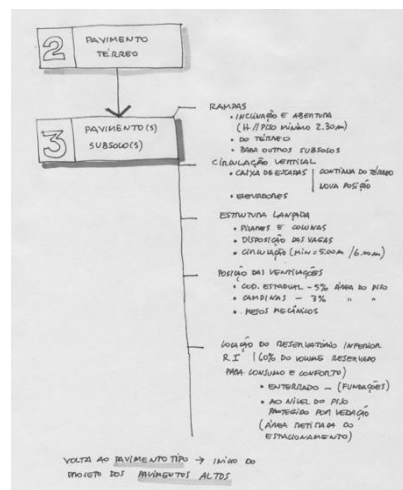 2
PAVIMENTO
TÉRREO
3
PAVIMENTO(S)
SUBSOLO(S)
RAMPAS
• INCLINAÇÃO E ABERTURA
(H // PISO MÍNIMO 2.30m)
• DO TÉRREO
• PARA OUTROS SUBSOLOS
CIRCULAÇÃO VERTICAL
• CAIXA DE ESCADAS | CONTINUA DO TÉRREO
NOVA POSIÇÃO
• ELEVADORES
ESTRUTURA LANÇADA
• PILARES E COLUNAS
• DISPOSIÇÃO DAS VAGAS
• CIRCULAÇÃO (MIN = 5.00m / 6.00m)
POSIÇÃO DAS VENTILAÇÕES
• COD. ESTADUAL - 5% ÁREA DO PISO
• CAMPINAS - 3% " "
• MEIOS MECÂNICOS
LOCAÇÃO DO RESERVATÓRIO INFERIOR
R.I (60% DO VOLUME RESERVADO
PARA CONSUMO E CONFORTO)
• ENTERRADO - (FUNDAÇÕES)
• AO NÍVEL DO PISO
PROTEGIDO POR VEDAÇÃO
(ÁREA RETIRADA DO
ESTACIONAMENTO)
VOLTA AO PAVIMENTO TIPO → INÍCIO DO
PROJETO DOS PAVIMENTOS ALTOS